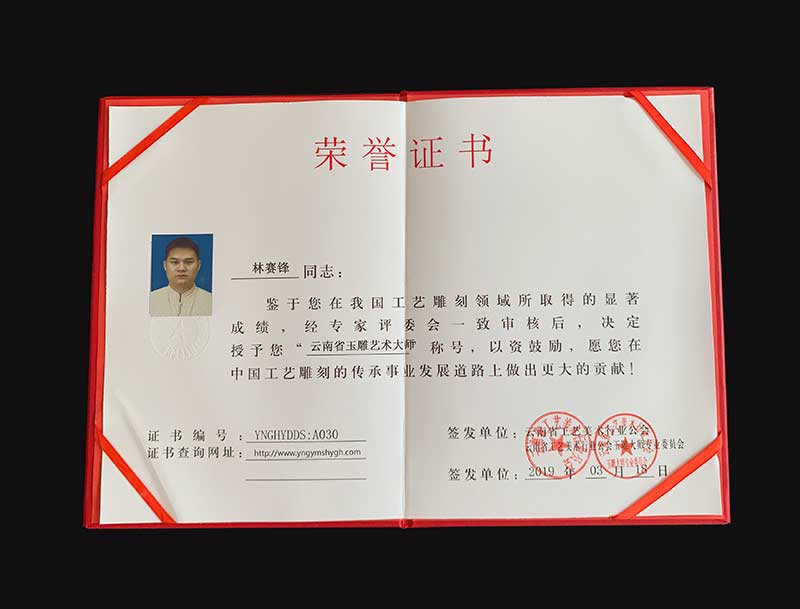 荣誉证书
林赛锋 同志：
鉴于您在我国工艺雕刻领域所取得的显著
成绩，经专家评委会一致审核后，决定
授予您“云南省玉雕艺术大师”称号，以资鼓励，愿您在
中国工艺雕刻的传承事业发展道路上做出更大的贡献！
证书编号：YNGHYDDS:A030
证书查询网址：http://www.yngymshygh.com
签发单位：云南省工艺美术行业公会
云南省工艺美术行业公会玉雕大师专业委员会
签发单位：2019 年 03 月 18 日